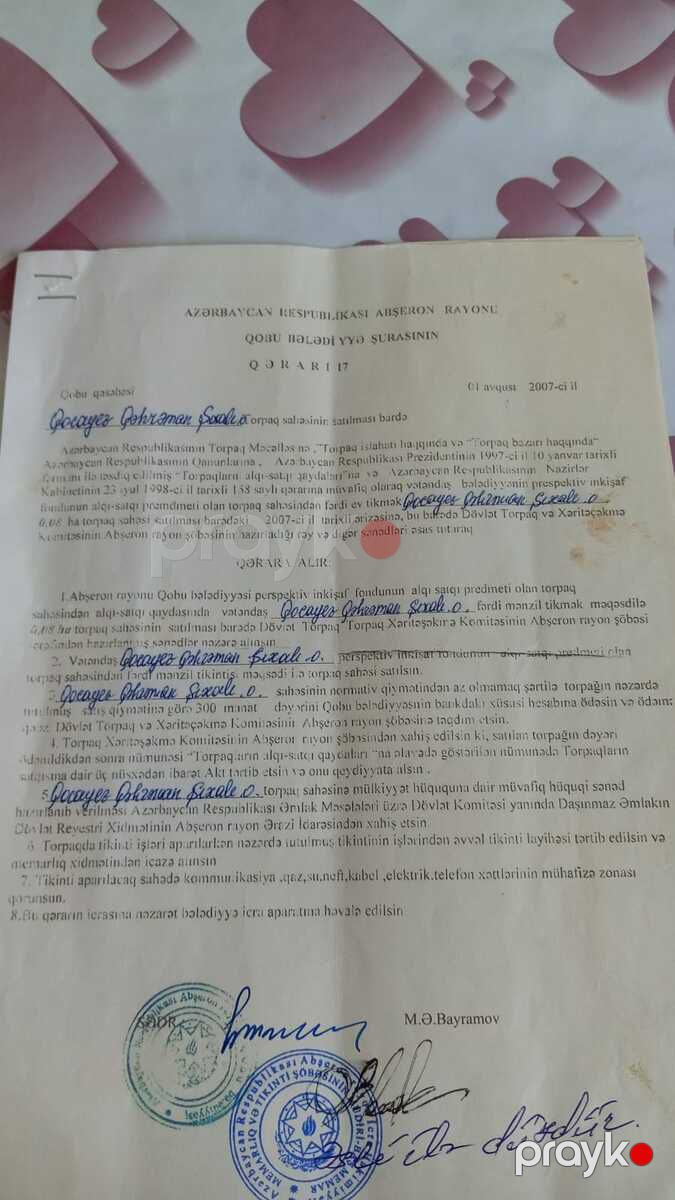 AZƏRBAYCAN RESPUBLİKASI ABŞERON RAYONU
QOBU BƏLƏDİYYƏ ŞURASININ
QƏRARI 17
Qobu qəsəbəsi 01 avqust 2007-ci il
Qocayev Qəhrəman Şıxalı.o. torpaq sahəsinin satılması bardə
Azərbaycan Respublikasının Torpaq Məcəlləsinə ,"Torpaq islahatı haqqında və "Torpaq bazarı haqqında"
Azərbaycan Respublikasının Qanunlarına , Azərbaycan Respublikası Prezidentinin 1997-ci il 10 yanvar tarixli
fərmanı ilə təsdiq edilmiş "Torpaqların alqı-satqı qaydaları"na və Azərbaycan Respublikasının Nazirlər
Kabinetinin 23 iyul 1998-ci il tarixli 158 saylı qərarına müvafiq olaraq vətəndaş bələdiyyənin prespektiv inkişaf
fondunun alqı-satqı premdmeti olan torpaq sahəsindən fərdi ev tikmək Qocayev Qəhrəman Şıxalı.o.
0,08 ha torpaq sahəsi satılması barədəki 2007-ci il tarixli ərizəsinə, bu barədə Dövlət Torpaq və Xəritəçəkmə
Komitəsinin Abşeron rayon şöbəsinin hazırladığı rəy və digər sənədləri əsas tutaraq
QƏRARA ALIR:
1.Abşeron rayonu Qobu bələdiyyəsi perspektiv inkişaf fondunun alqı satqı predmeti olan torpaq
sahəsindən alqı-satqı qaydasında vətəndaş Qocayev Qəhrəman Şıxalı.o. fərdi mənzil tikmək məqsədilə
0,08 ha torpaq sahəsinin satılması barədə Dövlət Torpaq Torpaq Xəritəşəkmə Komitəsinin Abşeron rayon şöbəsi
tərəfindən hazırlanmış sənədlər nəzərə alınsın
2. Vətəndaş Qocayev Qəhrəman Şıxalı.o. perspektiv inkişaf fondunun alqı-satqı predmeti olan
torpaq sahəsindən fərdi mənzil tikintisi məqsədi ilə torpaq sahəsi satılsın.
3. Qocayev Qəhrəman Şıxalı.o. sahəsinin normativ qiymətindən az olmamaq şərtilə torpağın nəzərdə
tutulmuş satış qiymətinə görə 300 manat dəyərini Qobu bələdiyyəsinin bankdakı xüsusi hesabına ödəsin və ödəmə
qəbzi Dövlət Torpaq və Xəritəçəkmə Komitəsinin Abşeron rayon şöbəsinə təqdim etsin.
4. Torpaq Xəritəşəkmə Komitəsinin Abşeron rayon şöbəsindən xahiş edilsin ki, satılan torpağın dəyəri
ödənildikdən sonra nümunəsi "Torpaqların alqı-satqı qaydaları "na əlavədə göstərilən nümunədə Torpaqların
satqısına dair üç nüsxədən ibarət Akt tərtib etsin və onu qeydiyyata alsın .
5. Qocayev Qəhrəman Şıxalı.o. torpaq sahəsinə mülkiyyət hüququna dair müvafiq hüquqi sənəd
hazırlanıb verilməsi Azərbaycan Respublikası Əmlak Məsələləri üzrə Dövlət Komitəsi yanında Daşınmaz Əmlakın
Dövlət Reyestri Xidmətinin Abşeron rayon Ərazi İdarəsindən xahiş etsin
6. Torpaqda tikinti işləri aparılarkən nəzərdə tutulmuş tikintinin işlərindən əvvəl tikinti layihəsi tərtib edilsin və
memarlıq xidmətindən icazə alınsın
7. Tikinti aparılacaq sahədə kommunikasiya ,qaz,su,neft,kabel ,elektrik,telefon xəttlərinin mühafizə zonası
qorunsun.
8.Bu qərarın icrasına nəzarət bələdiyyə icra aparatına həvalə edilsin
SƏDR M.Ə.Bayramov
Azərbaycan Respublikası Abşeron
Azərbaycan Respublikası Abşeron
MEMARLIQ VƏ TİKİNTİ ŞÖBƏSİNİN MÜDİRİ-BAŞ MEMAR
düzdür.
prayko
prayko